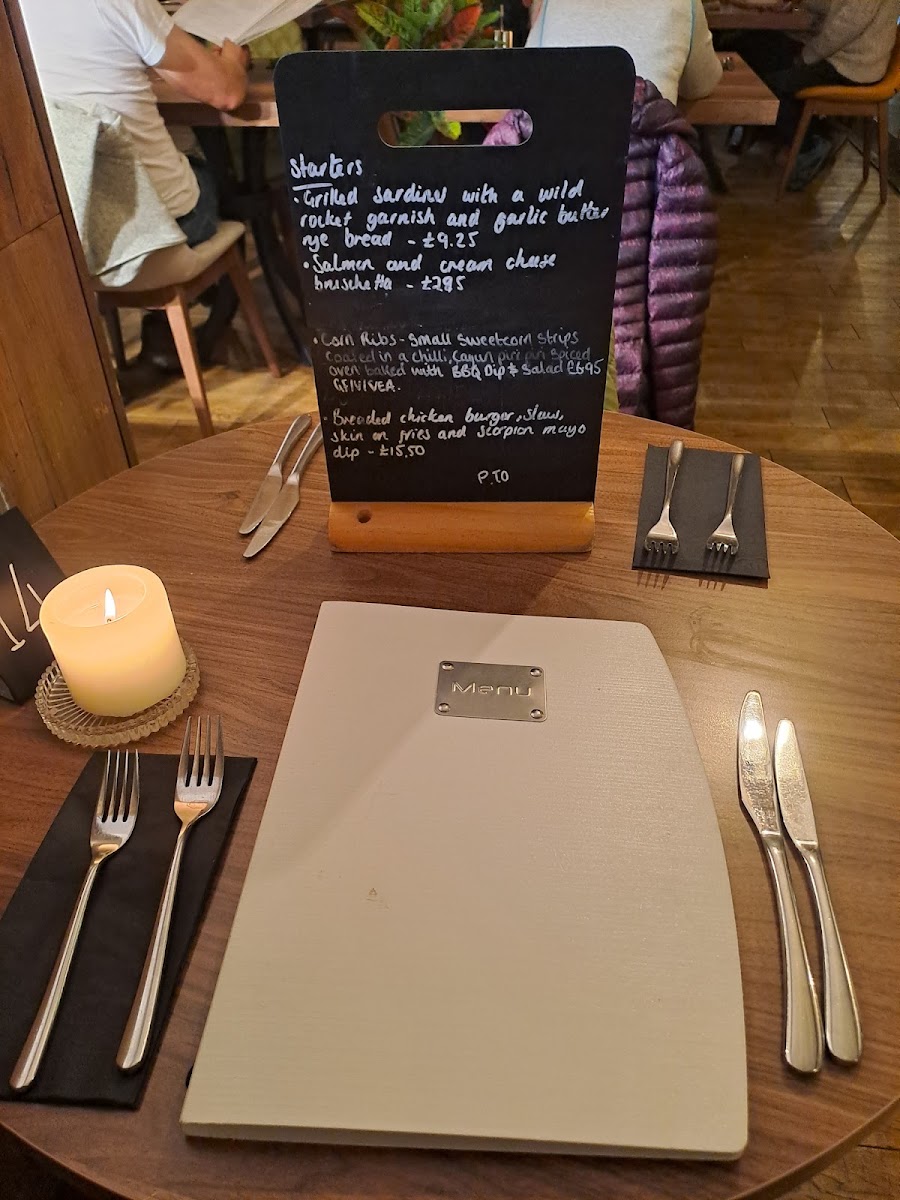 Starters
• Grilled sardines with a wild
rocket garnish and garlic butter
rye bread - £9.25
• Salmon and cream cheese
bruschetta - £7.95
• Corn Ribs - Small Sweetcorn Strips
coated in a chilli, Cajun piri piri Spiced
oven baked with BBQ Dip & Salad £6.95
GF/V/VEA.
• Breaded chicken burger, slaw,
skin on fries and scorpion mayo
dip - £15.50
P.TO
14
Menu